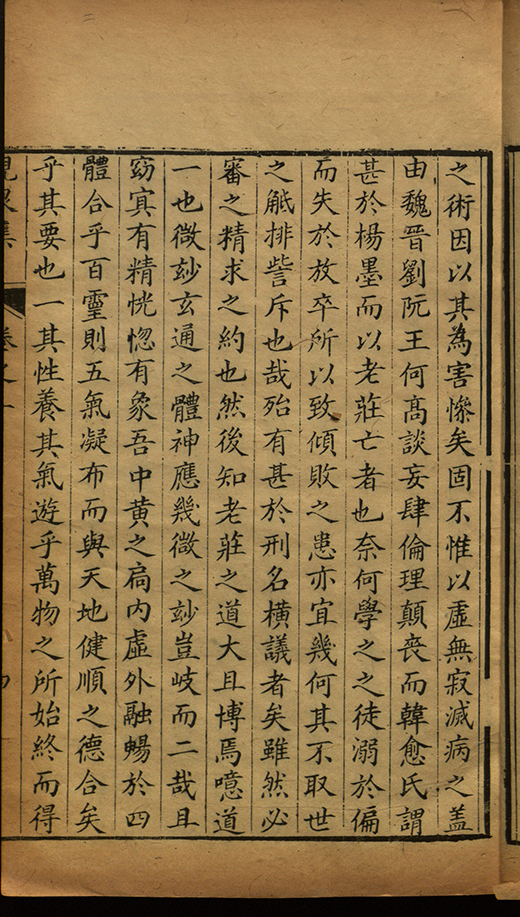 之術因以其為害慘矣固不惟以虛無寂滅病之盖
由魏晉劉阮王何髙談妄肆倫理顛喪而韓愈氏謂
甚於楊墨而以老莊亡者也奈何學之之徒溺於偏
而失於放卒所以致傾敗之患亦宜幾何其不取世
之觝排訾斥也哉殆有甚於刑名橫議者矣雖然必
審之精求之約也然後知老莊之道大且博焉噫道
一也微玅玄通之體神應幾微之玅豈岐而二哉且
窈㝠有精恍惚有象吾中黄之扃内虛外融暢於四
體合乎百靈則五氣凝布而與天地健順之德合矣
乎其要也一其性養其氣遊乎萬物之所始終而得
峴泉集 卷之一